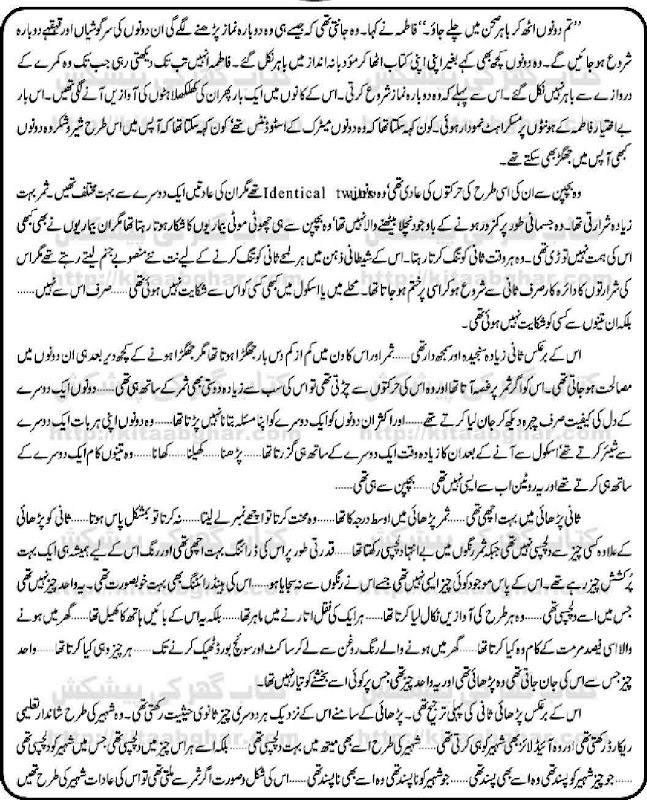 ’’تم دونوں اٹھ کر باہر صحن میں چلے جاؤ۔‘‘ فاطمہ نے کہا۔ وہ جانتی تھی کہ جیسے ہی وہ دوبارہ نماز پڑھنے لگے گی ان دونوں کی سرگوشیاں اور قہقہے دوبارہ
شروع ہو جائیں گے۔ وہ دونوں کچھ بھی کہے بغیر اپنی اپنی کتاب اٹھا کر مؤدبانہ انداز میں باہر نکل گئے۔ فاطمہ انہیں تب تک دیکھتی رہی جب تک وہ کمرے کے
دروازے سے باہر نہیں نکل گئے۔ اس سے پہلے کہ وہ دوبارہ نماز شروع کرتی۔ اس کے کانوں میں ایک بار پھر ان کی کھلکھلاہٹوں کی آوازیں آنے لگی تھیں۔ اس بار
بے اختیار فاطمہ کے ہونٹوں پر مسکراہٹ نمودار ہوئی۔ کون کہہ سکتا تھا کہ وہ دونوں میٹرک کے اسٹوڈنٹس تھے‘ کون کہہ سکتا تھا کہ آپس میں اس طرح شیر و شکر وہ دونوں
کبھی آپس میں جھگڑ بھی سکتے تھے۔
وہ بچپن سے ان کی اسی طرح کی حرکتوں کی عادی تھی‘ وہ Identical twins تھے مگر ان کی عادتیں ایک دوسرے سے بہت مختلف تھیں۔ ثمر بہت
زیادہ شرارتی تھا۔ وہ جسمانی طور پر کمزور ہونے کے باوجود نچلا بیٹھنے والا نہیں تھا‘ وہ بچپن سے ہی چھوٹی موٹی بیماریوں کا شکار ہوتا رہتا تھا مگر ان بیماریوں نے بھی کبھی
اس کی ہمت نہیں توڑی تھی۔ وہ ہر وقت ثانی کو تنگ کرتا رہتا۔ اس کے شیطانی ذہن میں ہر لمحے ثانی کو تنگ کرنے کے لیے نت نئے منصوبے جنم لیتے رہتے تھے مگر اس
کی شرارتوں کا دائرہ کار صرف ثانی سے شروع ہو کر اسی پر ختم ہو جاتا تھا۔ محلے میں یا اسکول میں کبھی کسی کو اس سے شکایت نہیں ہوئی تھی ..... صرف اس سے نہیں .....
بلکہ ان تینوں سے کسی کو شکایت نہیں ہوئی تھی۔
اس کے برعکس ثانی زیادہ سنجیدہ اور سمجھ دار تھی ..... ثمر اور اس کا دن میں کم از کم دس بار جھگڑا ہوتا تھا مگر جھگڑا ہونے کے کچھ دیر بعد ہی ان دونوں میں
مصالحت ہو جاتی تھی۔ اس کو اگر ثمر پر غصہ آتا تھا اور وہ اس کی حرکتوں سے چڑتی تھی تو اس کی سب سے زیادہ دوستی بھی ثمر کے ساتھ ہی تھی ..... دونوں ایک دوسرے
کے دل کی کیفیت صرف چہرہ دیکھ کر جان لیا کرتے تھے ..... اور اکثر ان دونوں کو ایک دوسرے کو اپنا مسئلہ بتانا نہیں پڑتا تھا ..... وہ دونوں اپنی ہر بات ایک دوسرے
سے شیئر کرتے تھے‘ اسکول سے آنے کے بعد ان کا زیادہ وقت ایک دوسرے کے ساتھ ہی گزرتا تھا ..... پڑھنا ..... کھیلنا ..... کھانا ..... وہ تینوں کام ایک دوسرے کے
ساتھ ہی کرتے تھے اور یہ روٹین اب سے ایسی نہیں تھی ..... بچپن سے ہی تھی .....
ثانی پڑھائی میں بہت اچھی تھی ..... ثمر پڑھائی میں اوسط درجہ کا تھا ..... وہ محنت کرتا تو اچھے نمبر لے لیتا ..... نہ کرتا تو بمشکل پاس ہوتا ..... ثانی کو پڑھائی
کے علاوہ کسی چیز سے دلچسپی نہیں تھی جبکہ ثمر رنگوں میں بے انتہا دلچسپی رکھتا تھا ..... قدرتی طور پر اس کی ڈرائنگ بہت اچھی تھی اور رنگ اس کے لیے ہمیشہ ہی ایک بہت
پرکشش چیز رہے تھے۔ اس کے پاس موجود کوئی چیز ایسی نہیں تھی جسے اس نے رنگوں سے نہ سجایا ہو ..... اس کی ہینڈ رائٹنگ بھی بہت خوبصورت تھی۔ یہ واحد چیز نہیں تھی
جس میں اسے دلچسپی تھی ..... وہ ہر طرح کی آوازیں نکال لیا کرتا تھا ..... ہر ایک کی نقل اتارنے میں ماہر تھا ..... بلکہ یہ اس کے بائیں ہاتھ کا کھیل تھا ..... گھر میں ہونے
والا اسی فیصد مرمت کے کام وہ کیا کرتا تھا ..... گھر میں ہونے والے رنگ روغن سے لے کر ساکٹ اور سوئچ بورڈ ٹھیک کرنے تک ..... ہر چیز وہی کیا کرتا تھا ..... واحد
چیز جس سے اس کی جان جاتی تھی وہ پڑھائی تھی اور یہ واحد چیز تھی جس پر کوئی اسے بخشنے کو تیار نہیں تھا۔
اس کے برعکس پڑھائی ثانی کی پہلی ترجیح تھی۔ پڑھائی کے سامنے اس کے نزدیک ہر دوسری چیز ثانوی حیثیت رکھتی تھی۔ وہ شہیر کی طرح شاندار تعلیمی
ریکارڈ رکھتی تھی اور وہ آئیڈیلائز بھی شہیر کو ہی کرتی تھی ..... شہیر کی طرح اسے بھی میتھ میں بہت دلچسپی تھی ..... بلکہ اسے ہر اس چیز میں دلچسپی تھی جس میں شہیر کو دلچسپی تھی
..... جو چیز شہیر کو پسند تھی وہ اسے بھی پسند تھی ..... جو شہیر کو ناپسند تھی وہ اسے بھی ناپسند تھی ..... اس کی شکل و صورت اگر ثمر سے ملتی تھی تو اس کی عادات شہیر کی طرح تھیں